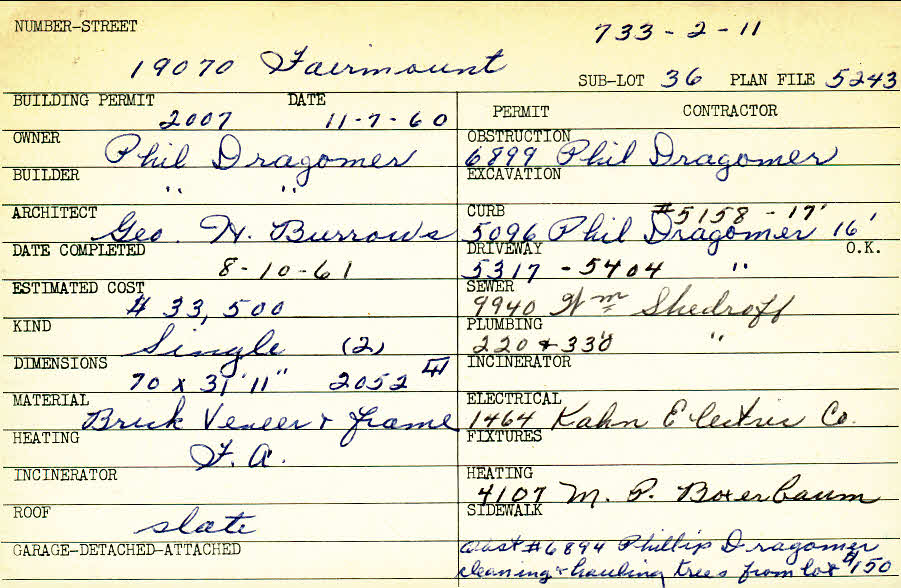 NUMBER-STREET
733-2-11
19070 Fairmount
SUB-LOT 36 PLAN FILE 5243
BUILDING PERMIT DATE
2007 11-7-60
OWNER
Phil Dragomer
BUILDER
" "
ARCHITECT
Geo. H. Burrows
DATE COMPLETED
8-10-61
ESTIMATED COST
$ 33,500
KIND
Single (2)
DIMENSIONS
70 x 31'11" 2052
MATERIAL
Brick Veneer & frame
HEATING
F. A.
INCINERATOR
ROOF
slate
GARAGE-DETACHED-ATTACHED
PERMIT CONTRACTOR
OBSTRUCTION
6899 Phil Dragomer
EXCAVATION
CURB #5158 - 17'
5096 Phil Dragomer 16'
DRIVEWAY O.K.
5317 - 5404 "
SEWER
9940 Wm Shedroff
PLUMBING
220 & 330 "
INCINERATOR
ELECTRICAL
1464 Kahn Electric Co.
FIXTURES
HEATING
4107 M. P. Boxerbaum
SIDEWALK
#6894 Phillip Dragomer
cleaning & hauling trees from lot $150